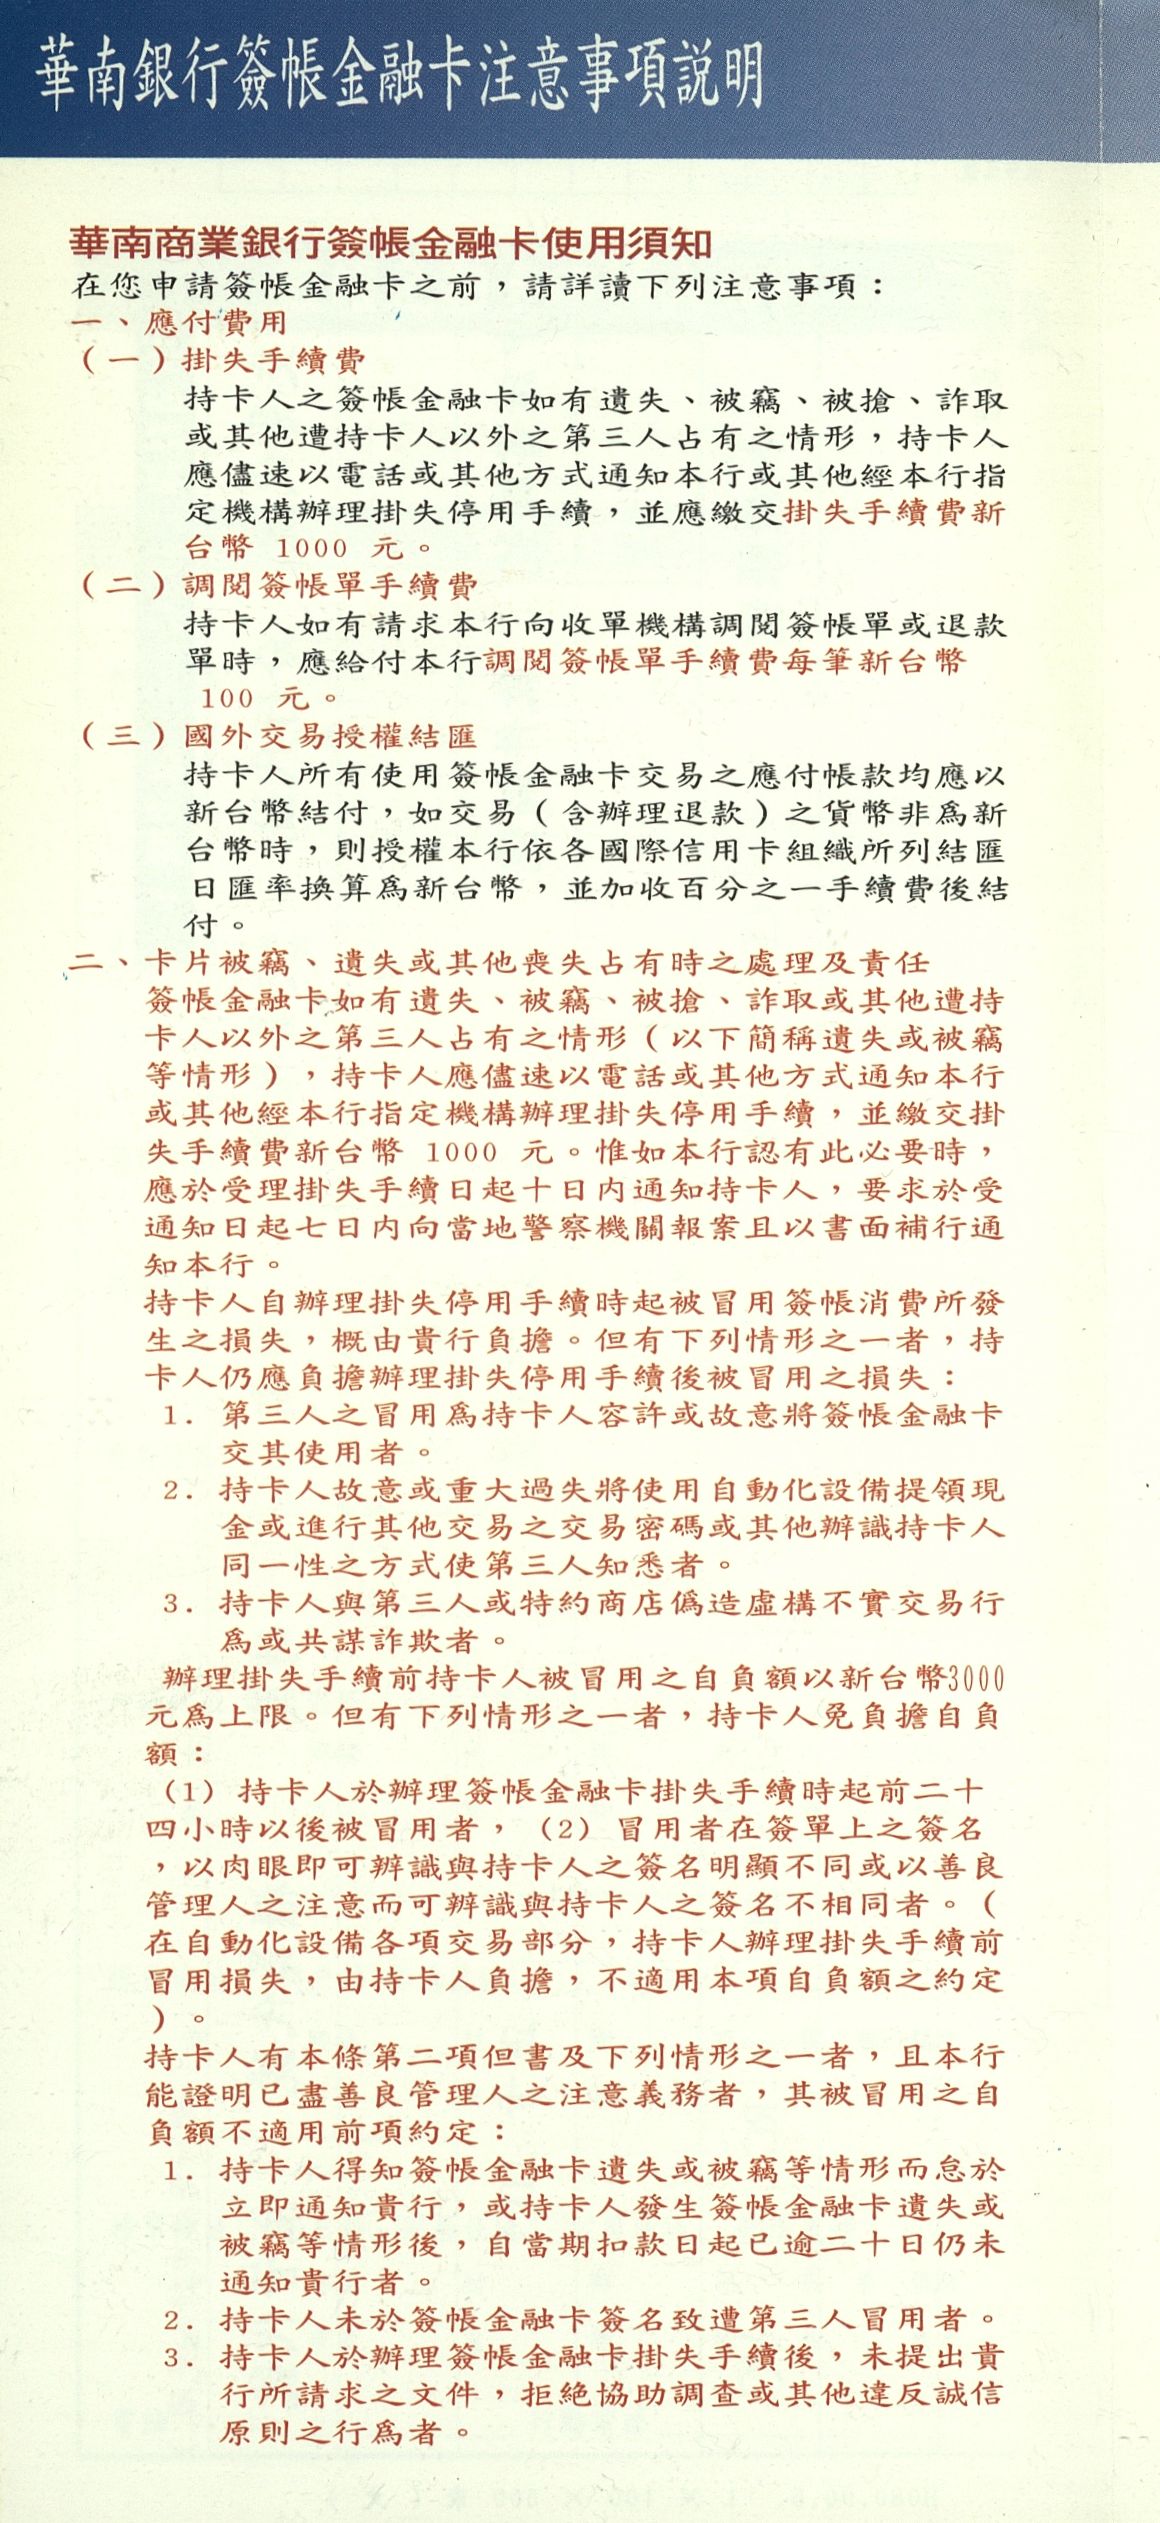 華南銀行簽帳金融卡注意事項說明
華南商業銀行簽帳金融卡使用須知
在您申請簽帳金融卡之前，請詳讀下列注意事項：
一、應付費用
（一）掛失手續費
持卡人之簽帳金融卡如有遺失、被竊、被搶、詐取
或其他遭持卡人以外之第三人占有之情形，持卡人
應儘速以電話或其他方式通知本行或其他經本行指
定機構辦理掛失停用手續，並應繳交掛失手續費新
台幣 1000 元。
（二）調閱簽帳單手續費
持卡人如有請求本行向收單機構調閱簽帳單或退款
單時，應給付本行調閱簽帳單手續費每筆新台幣
100 元。
（三）國外交易授權結匯
持卡人所有使用簽帳金融卡交易之應付帳款均應以
新台幣結付，如交易（含辦理退款）之貨幣非為新
台幣時，則授權本行依各國際信用卡組織所列結匯
日匯率換算為新台幣，並加收百分之一手續費後結
付。
二、卡片被竊、遺失或其他喪失占有時之處理及責任
簽帳金融卡如有遺失、被竊、被搶、詐取或其他遭持
卡人以外之第三人占有之情形（以下簡稱遺失或被竊
等情形），持卡人應儘速以電話或其他方式通知本行
或其他經本行指定機構辦理掛失停用手續，並繳交掛
失手續費新台幣 1000 元。惟如本行認有此必要時，
應於受理掛失手續日起十日內通知持卡人，要求於受
通知日起七日內向當地警察機關報案且以書面補行通
知本行。
持卡人自辦理掛失停用手續時起被冒用簽帳消費所發
生之損失，概由貴行負擔。但有下列情形之一者，持
卡人仍應負擔辦理掛失停用手續後被冒用之損失：
1. 第三人之冒用為持卡人容許或故意將簽帳金融卡
交其使用者。
2. 持卡人故意或重大過失將使用自動化設備提領現
金或進行其他交易之交易密碼或其他辦識持卡人
同一性之方式使第三人知悉者。
3. 持卡人與第三人或特約商店偽造虛構不實交易行
為或共謀詐欺者。
辦理掛失手續前持卡人被冒用之自負額以新台幣3000
元為上限。但有下列情形之一者，持卡人免負擔自負
額：
(1) 持卡人於辦理簽帳金融卡掛失手續時起前二十
四小時以後被冒用者， (2) 冒用者在簽單上之簽名
，以肉眼即可辨識與持卡人之簽名明顯不同或以善良
管理人之注意而可辨識與持卡人之簽名不相同者。（
在自動化設備各項交易部分，持卡人辦理掛失手續前
冒用損失，由持卡人負擔，不適用本項自負額之約定
）。
持卡人有本條第二項但書及下列情形之一者，且本行
能證明已盡善良管理人之注意義務者，其被冒用之自
負額不適用前項約定：
1. 持卡人得知簽帳金融卡遺失或被竊等情形而怠於
立即通知貴行，或持卡人發生簽帳金融卡遺失或
被竊等情形後，自當期扣款日起已逾二十日仍未
通知貴行者。
2. 持卡人未於簽帳金融卡簽名致遭第三人冒用者。
3. 持卡人於辦理簽帳金融卡掛失手續後，未提出貴
行所請求之文件，拒絕協助調查或其他違反誠信
原則之行為者。